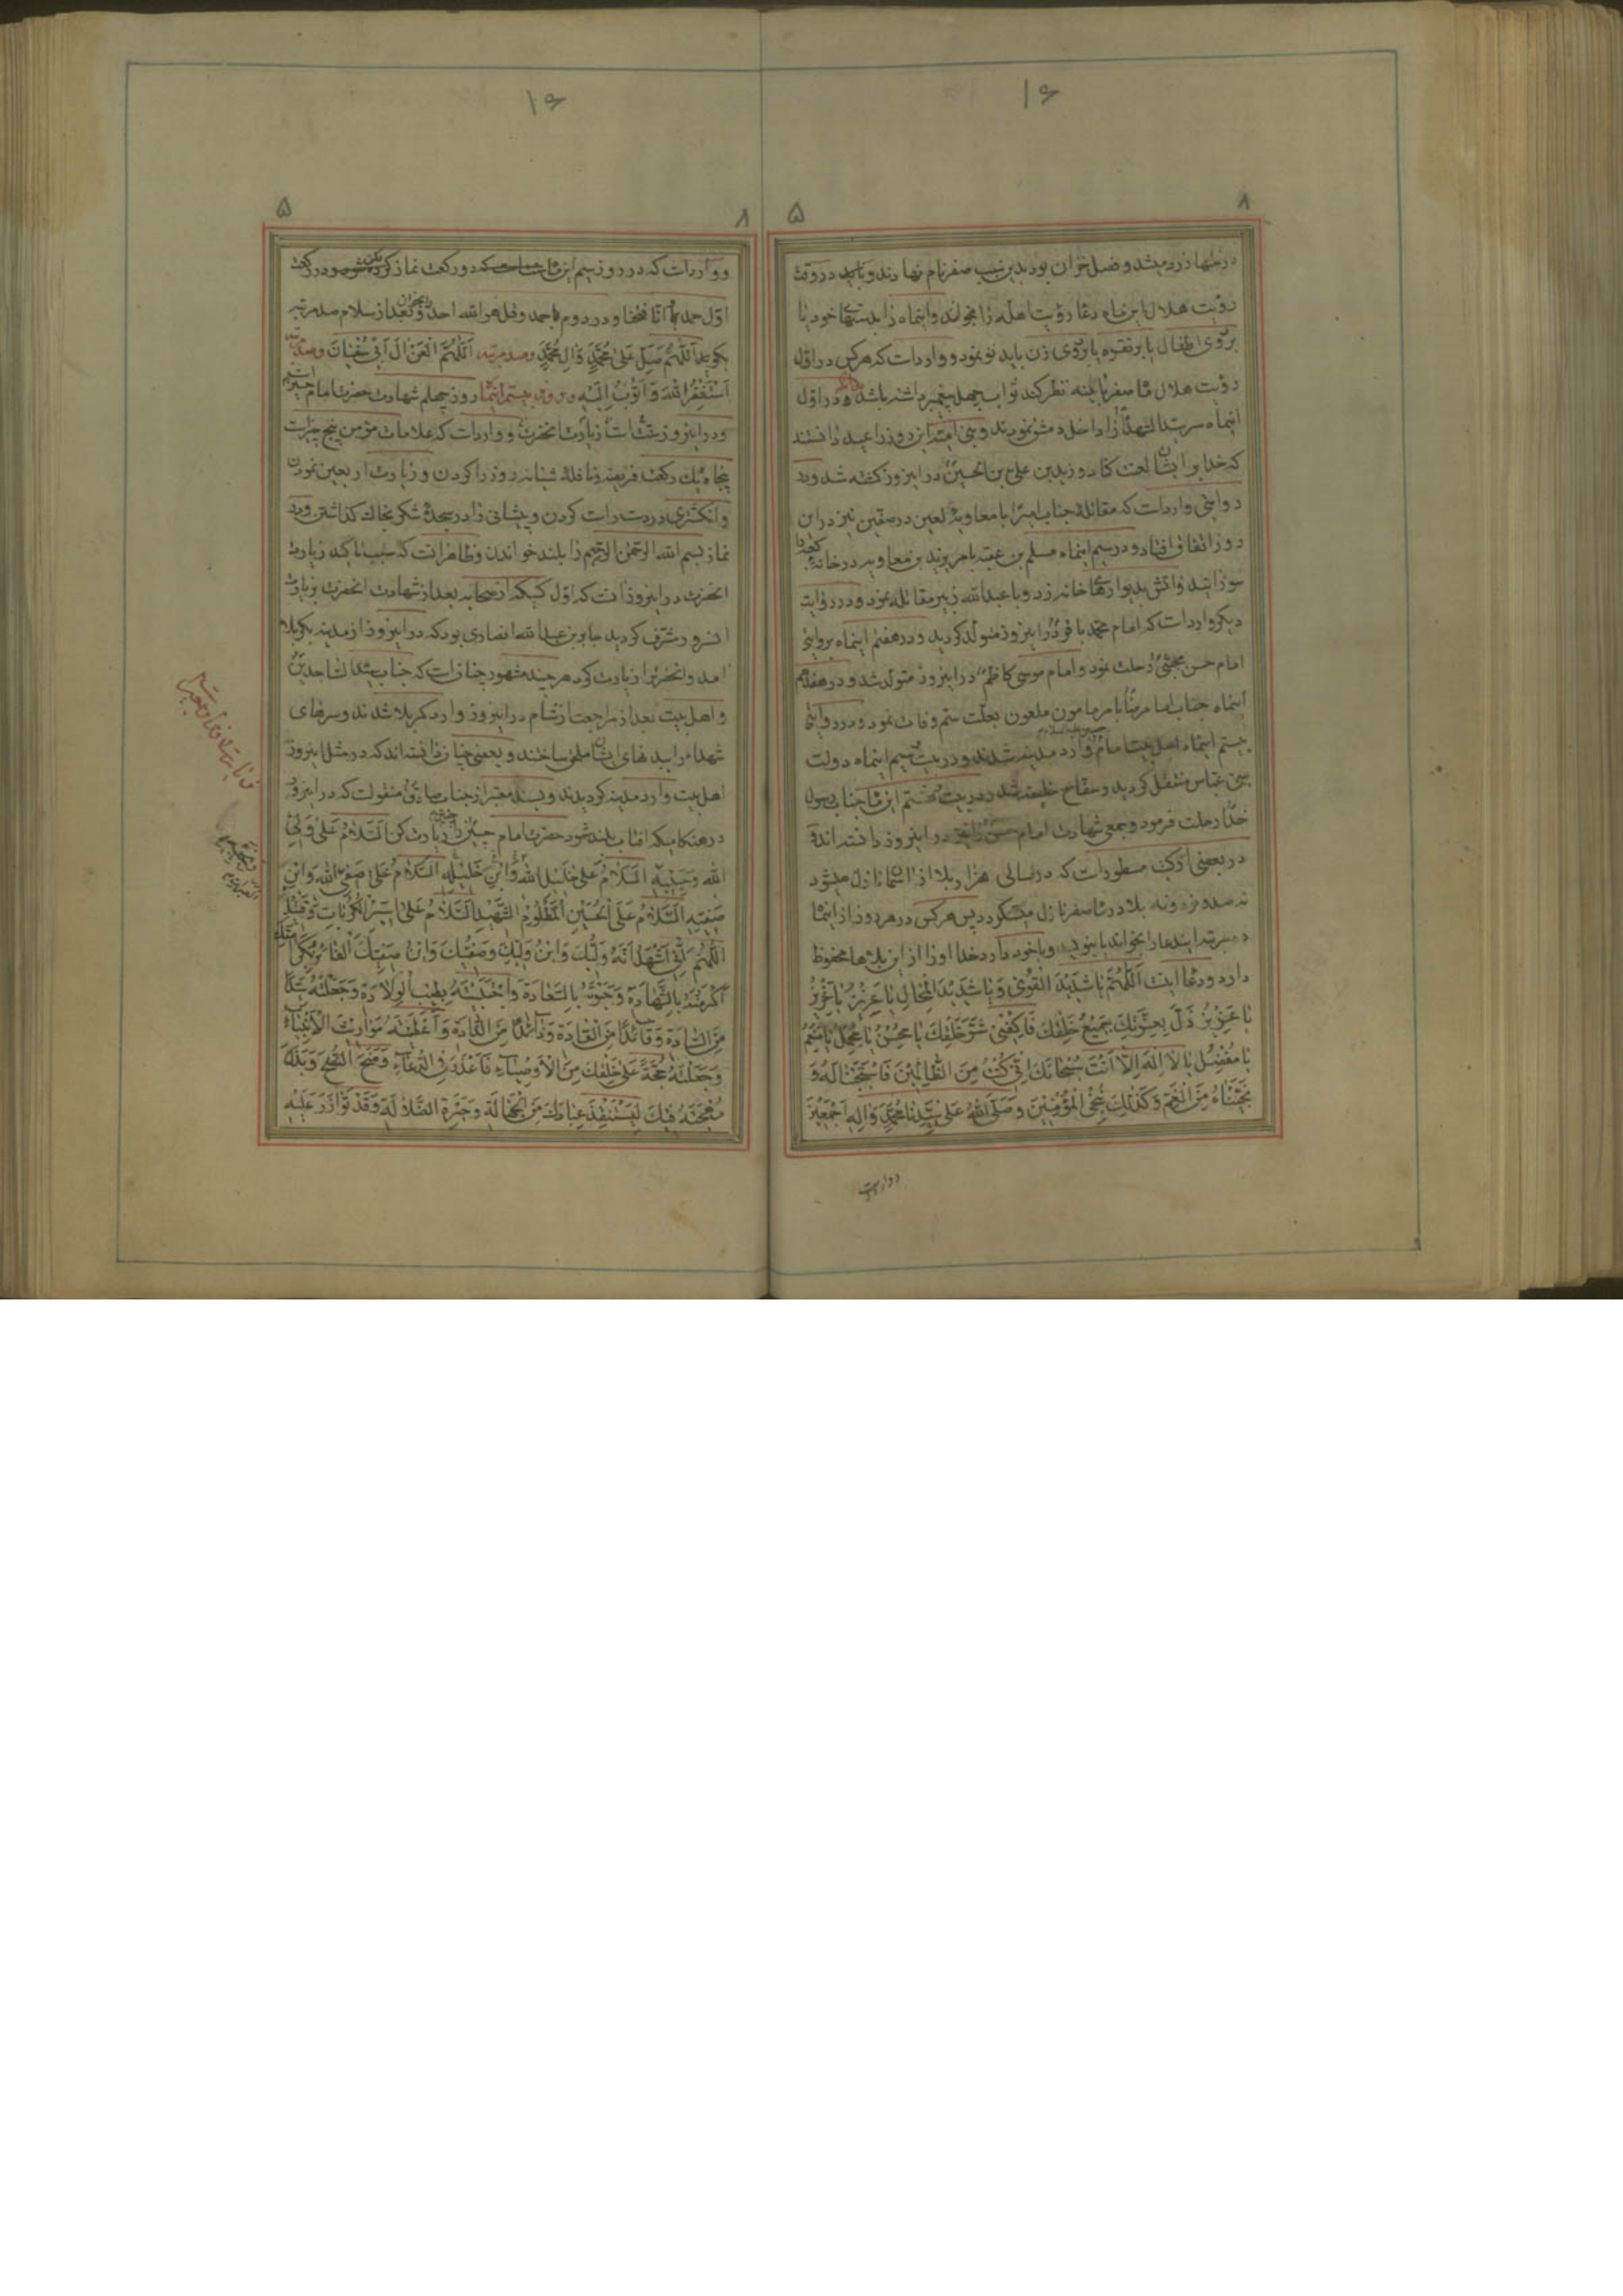 ۱۶
۸
۵
درختها زرد میشد و فصل خزان بود بدین سبب صفر نام نهادند و باید در وقت
رؤیت هلال این ماه دعاء رؤیت اهله را بخواند و اینماه را بدستهای خود یا
بروی اطفال یا بر نقره یا بروی زن باید نو نمود و وارد است که هر کس در اول
رؤیت هلال ماه صفر باینه نظر کند ثواب چهل پیغمبر داشته باشد و در اول
اینماه سر سید الشهدا را داخل دمشق نمودند و بنی امیه این روز را عید دانستند
که خدا بر ایشان لعنت کناد و زید بن علی بن الحسین در اینروز کشته شد و در
روایتی وارد است که مقاتله جناب امیر با معاویه لعین در صفین نیز در این
روز اتفاق افتاد و در سیم اینماه مسلم بن عقبه بامر یزید بن معاویه در خانه کعبه را
سوزانید و آتش بدیوارهای خانه زد و با عبدالله زبیر مقاتله نمود و در روایت
دیگر وارد است که امام محمد باقر در اینروز متولد گردید و در هفتم اینماه بروایتی
امام حسن مجتبی رحلت نمود و امام موسی کاظم در اینروز متولد شد و در هفدهم
اینماه جناب امام رضا بامر مامون ملعون بعلت سم وفات نمود و در روایتی
بیستم اینماه اهل بیت امام وارد مدینه شدند و در بیست سیم اینماه دولت
بنی عباس منتقل گردید و سفاح خلیفه شد و در بیست هشتم این ماه جناب رسول
خدا رحلت فرمود و جمعی شهادت امام حسن را نیز در اینروز دانسته اند و
در بعضی از کتب مسطور است که در سالی هزار بلا از آسمان نازل میشود
نه صد و نود و نه بلا در ماه صفر نازل میگردد پس هر کس در هر روز از اینماه
ده مرتبه ایندعا را بخواند یا بنویسد و با خود دارد خدا او را از این بلاها محفوظ
دارد و دعا اینست اَللّهُمَّ یا شَدیدَ الْقُوی وَ یا شَدیدَ الْمِحالِ یا عَزیزُ یا عَزیزُ
یا عَزیزُ ذَلَّ بِعِزَّتِكَ جَمیعُ خَلْقِكَ فَاكْفِنی شَرَّ خَلْقِكَ یا مُحْسِنُ یا مُجْمِلُ یا مُنْعِمُ
یا مُفْضِلُ یا لا اِلهَ اِلّا اَنْتَ سُبْحانَكَ اِنّی كُنْتُ مِنَ الظّالِمینَ فَاسْتَجَبْنا لَهُ وَ
نَجَّیْناهُ مِنَ الْغَمِّ وَ كَذلِكَ نُنْجِی الْمُؤْمِنینَ وَ صَلَّی اللهُ عَلی سَیِّدِنا مُحَمَّدٍ وَ الِهِ اَجْمَعینَ
و وارد است
۱۶
۸
۵
و وارد است که در روز سیم این ماه دو رکعت نماز و در رکعت
اول حمد و انا فتحنا و در دوم با حمد و قل هو الله احد را بخواند و بعد از سلام صد مرتبه
بگوید اَللّهُمَّ صَلِّ عَلی مُحَمَّدٍ وَ الِ مُحَمَّدٍ و صد مرتبه اَللّهُمَّ الْعَنْ الَ اَبی سُفْیانَ و صد مرتبه
اَسْتَغْفِرُ اللهَ وَ اَتُوبُ اِلَیْهِ و روز بیستم اینماه روز چهلم شهادت حضرت امام حسین است
و در اینروز سنت است زیارت انحضرت و وارد است که علامات مؤمن پنج چیز است
پنجاه یك رکعت فریضه و نافله شبانه روز را کردن و زیارت اربعین نمودن
و انگشتری در دست راست کردن و پیشانی را در سجده شکر بخاك گذاشتن و در
نماز بسم الله الرحمن الرحیم را بلند خواندن و ظاهر انست که سبب تاکید زیارت
انحضرت در اینروز انست که اول کسیکه از صحابه بعد از شهادت انحضرت بزیارت
انسرور مشرف گردید جابر بن عبدالله انصاری بود که در اینروز از مدینه بکربلا
آمد و انحضرترا زیارت کرد هر چند مشهور چنانست که جناب سید الساجدین
و اهل بیت بعد از مراجعت از شام در اینروز وارد کربلا شدند و سرهای
شهداء را ببدنهای ایشان ملحق ساختند و بعضی چنان دانسته اند که در مثل اینروز
اهل بیت وارد مدینه گردیدند و بسند معتبر از جناب صادق منقولست که در اینروز
در هنگامیکه افتاب بلند شود حضرت امام حسین را زیارت کن اَلسَّلامُ عَلی وَلِیِّ
اللهِ وَ حَبیبِهِ اَلسَّلامُ عَلی خَلیلِ اللهِ وَ ابْنِ خَلیلِهِ اَلسَّلامُ عَلی صَفِیِّ اللهِ وَ ابْنِ
صَفِیِّهِ اَلسَّلامُ عَلَی الْحُسَیْنِ الْمَظْلُومِ الشَّهیدِ اَلسَّلامُ عَلی اَسیرِ الْكُرُباتِ وَ قَتیلِ
اَللّهُمَّ اِنّی اَشْهَدُ اَنَّهُ وَلِیُّكَ وَ ابْنُ وَلِیِّكَ وَ صَفِیُّكَ وَ ابْنُ صَفِیِّكَ الْفائِزُ بِكَرامَتِكَ
اَكْرَمْتَهُ بِالشَّهادَةِ وَ حَبَوْتَهُ بِالسَّعادَةِ وَ اجْتَبَیْتَهُ بِطیبِ الْوِلادَةِ وَ جَعَلْتَهُ سَیِّدًا
مِنَ السّادَةِ وَ قائِدًا مِنَ الْقادَةِ وَ ذائِدًا مِنَ الذّادَةِ وَ اَعْطَیْتَهُ مَواریثَ الْاَنْبِیاءِ
وَ جَعَلْتَهُ حُجَّةً عَلی خَلْقِكَ مِنَ الْاَوْصِیاءِ فَاَعْذَرَ فِی الدُّعاءِ وَ مَنَحَ النُّصْحَ وَ بَذَلَ
مُهْجَتَهُ فیكَ لِیَسْتَنْقِذَ عِبادَكَ مِنَ الْجَهالَةِ وَ حَیْرَةِ الضَّلالَةِ وَ قَدْ تَوازَرَ عَلَیْهِ